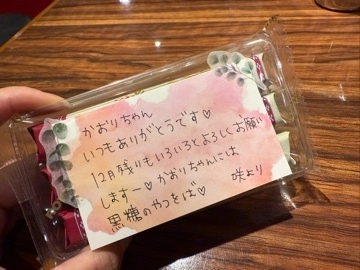 かおりちゃん
いつもありがとうです♡
12月残りもいろいろとよろしくお願い
しますー♡ かおりちゃんには
黒糖のやつをば♡
咲より